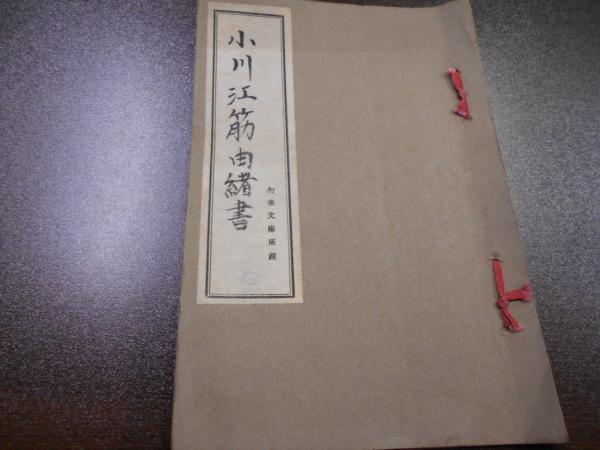 小川江筋由緒書
勿来文庫所蔵